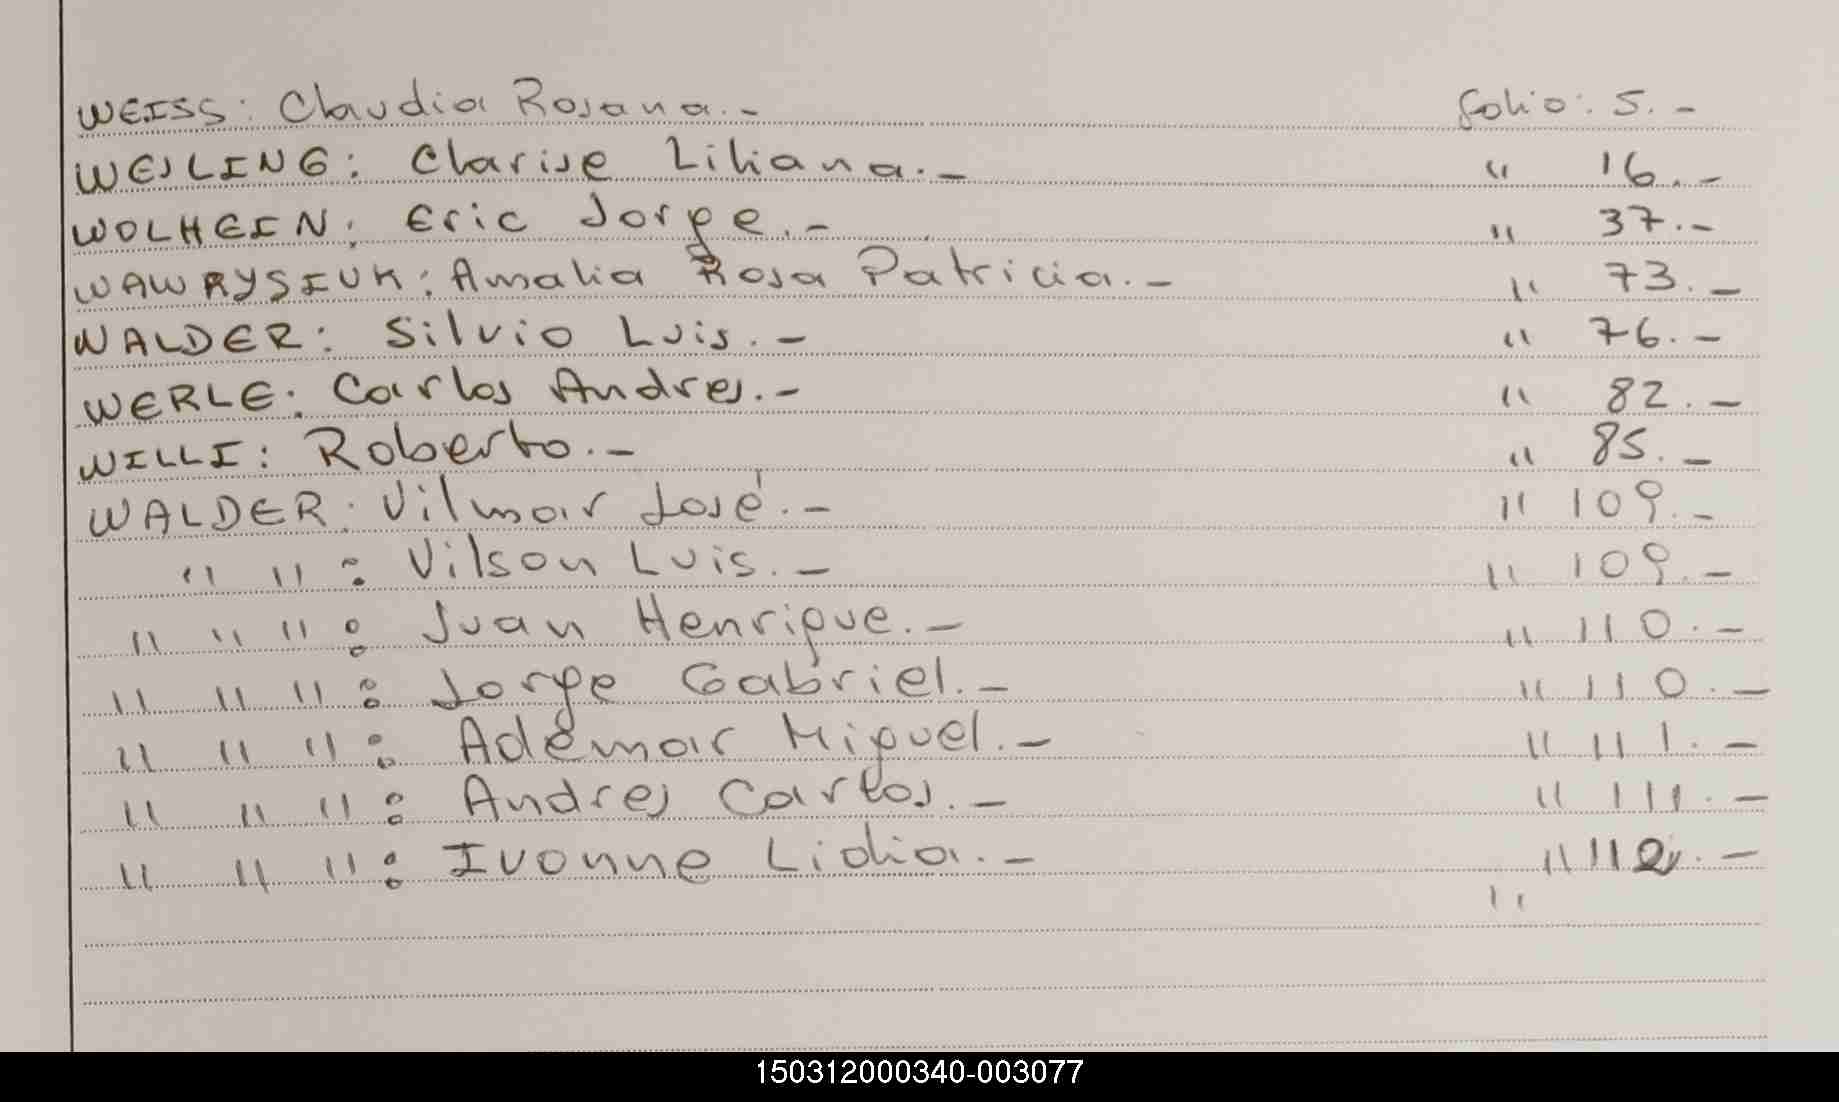 WEISS: Claudia Rosana.- folio: 5.-
WESLING: Clarise Liliana.- " 16.-
WOLHEIN: Eric Jorge.- " 37.-
WAWRYSIUK: Amalia Rosa Patricia.- " 73.-
WALDER: Silvio Luis.- " 76.-
WERLE: Carlos Andres.- " 82.-
WILLI: Roberto.- " 85.-
WALDER: Vilmar José.- " 109.-
" " : Vilson Luis.- " 109.-
" " " : Juan Henrique.- " 110.-
" " " : Jorge Gabriel.- " 110.-
" " " : Ademar Miguel.- " 111.-
" " " : Andres Carlos.- " 111.-
" " " : Ivonne Lidia.- " 112.-
"
150312000340-003077